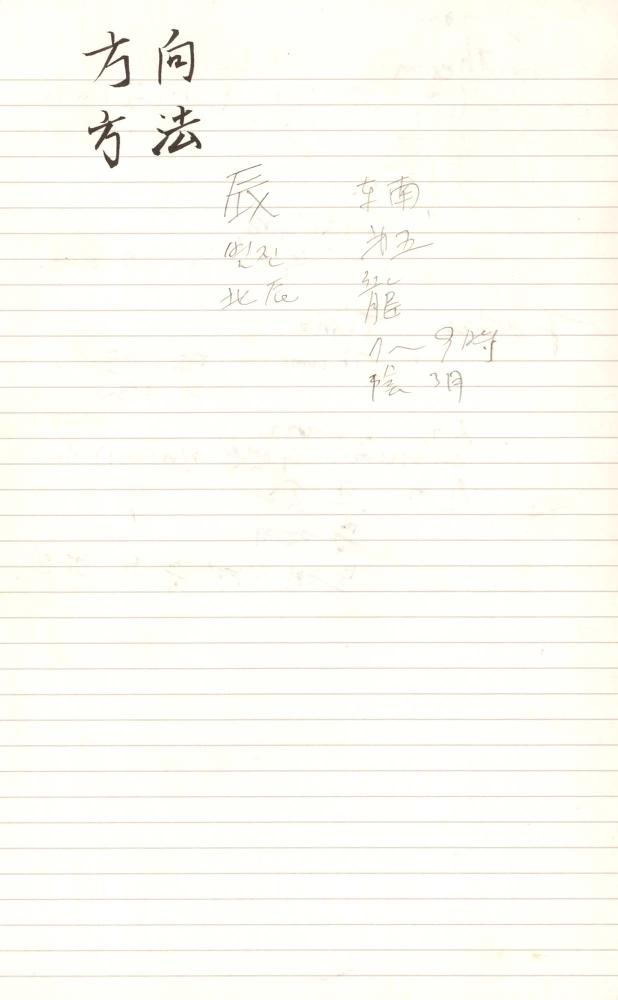 方向
方法
辰 东南
별진 第五
北辰 龍
7~9時
陰 3月